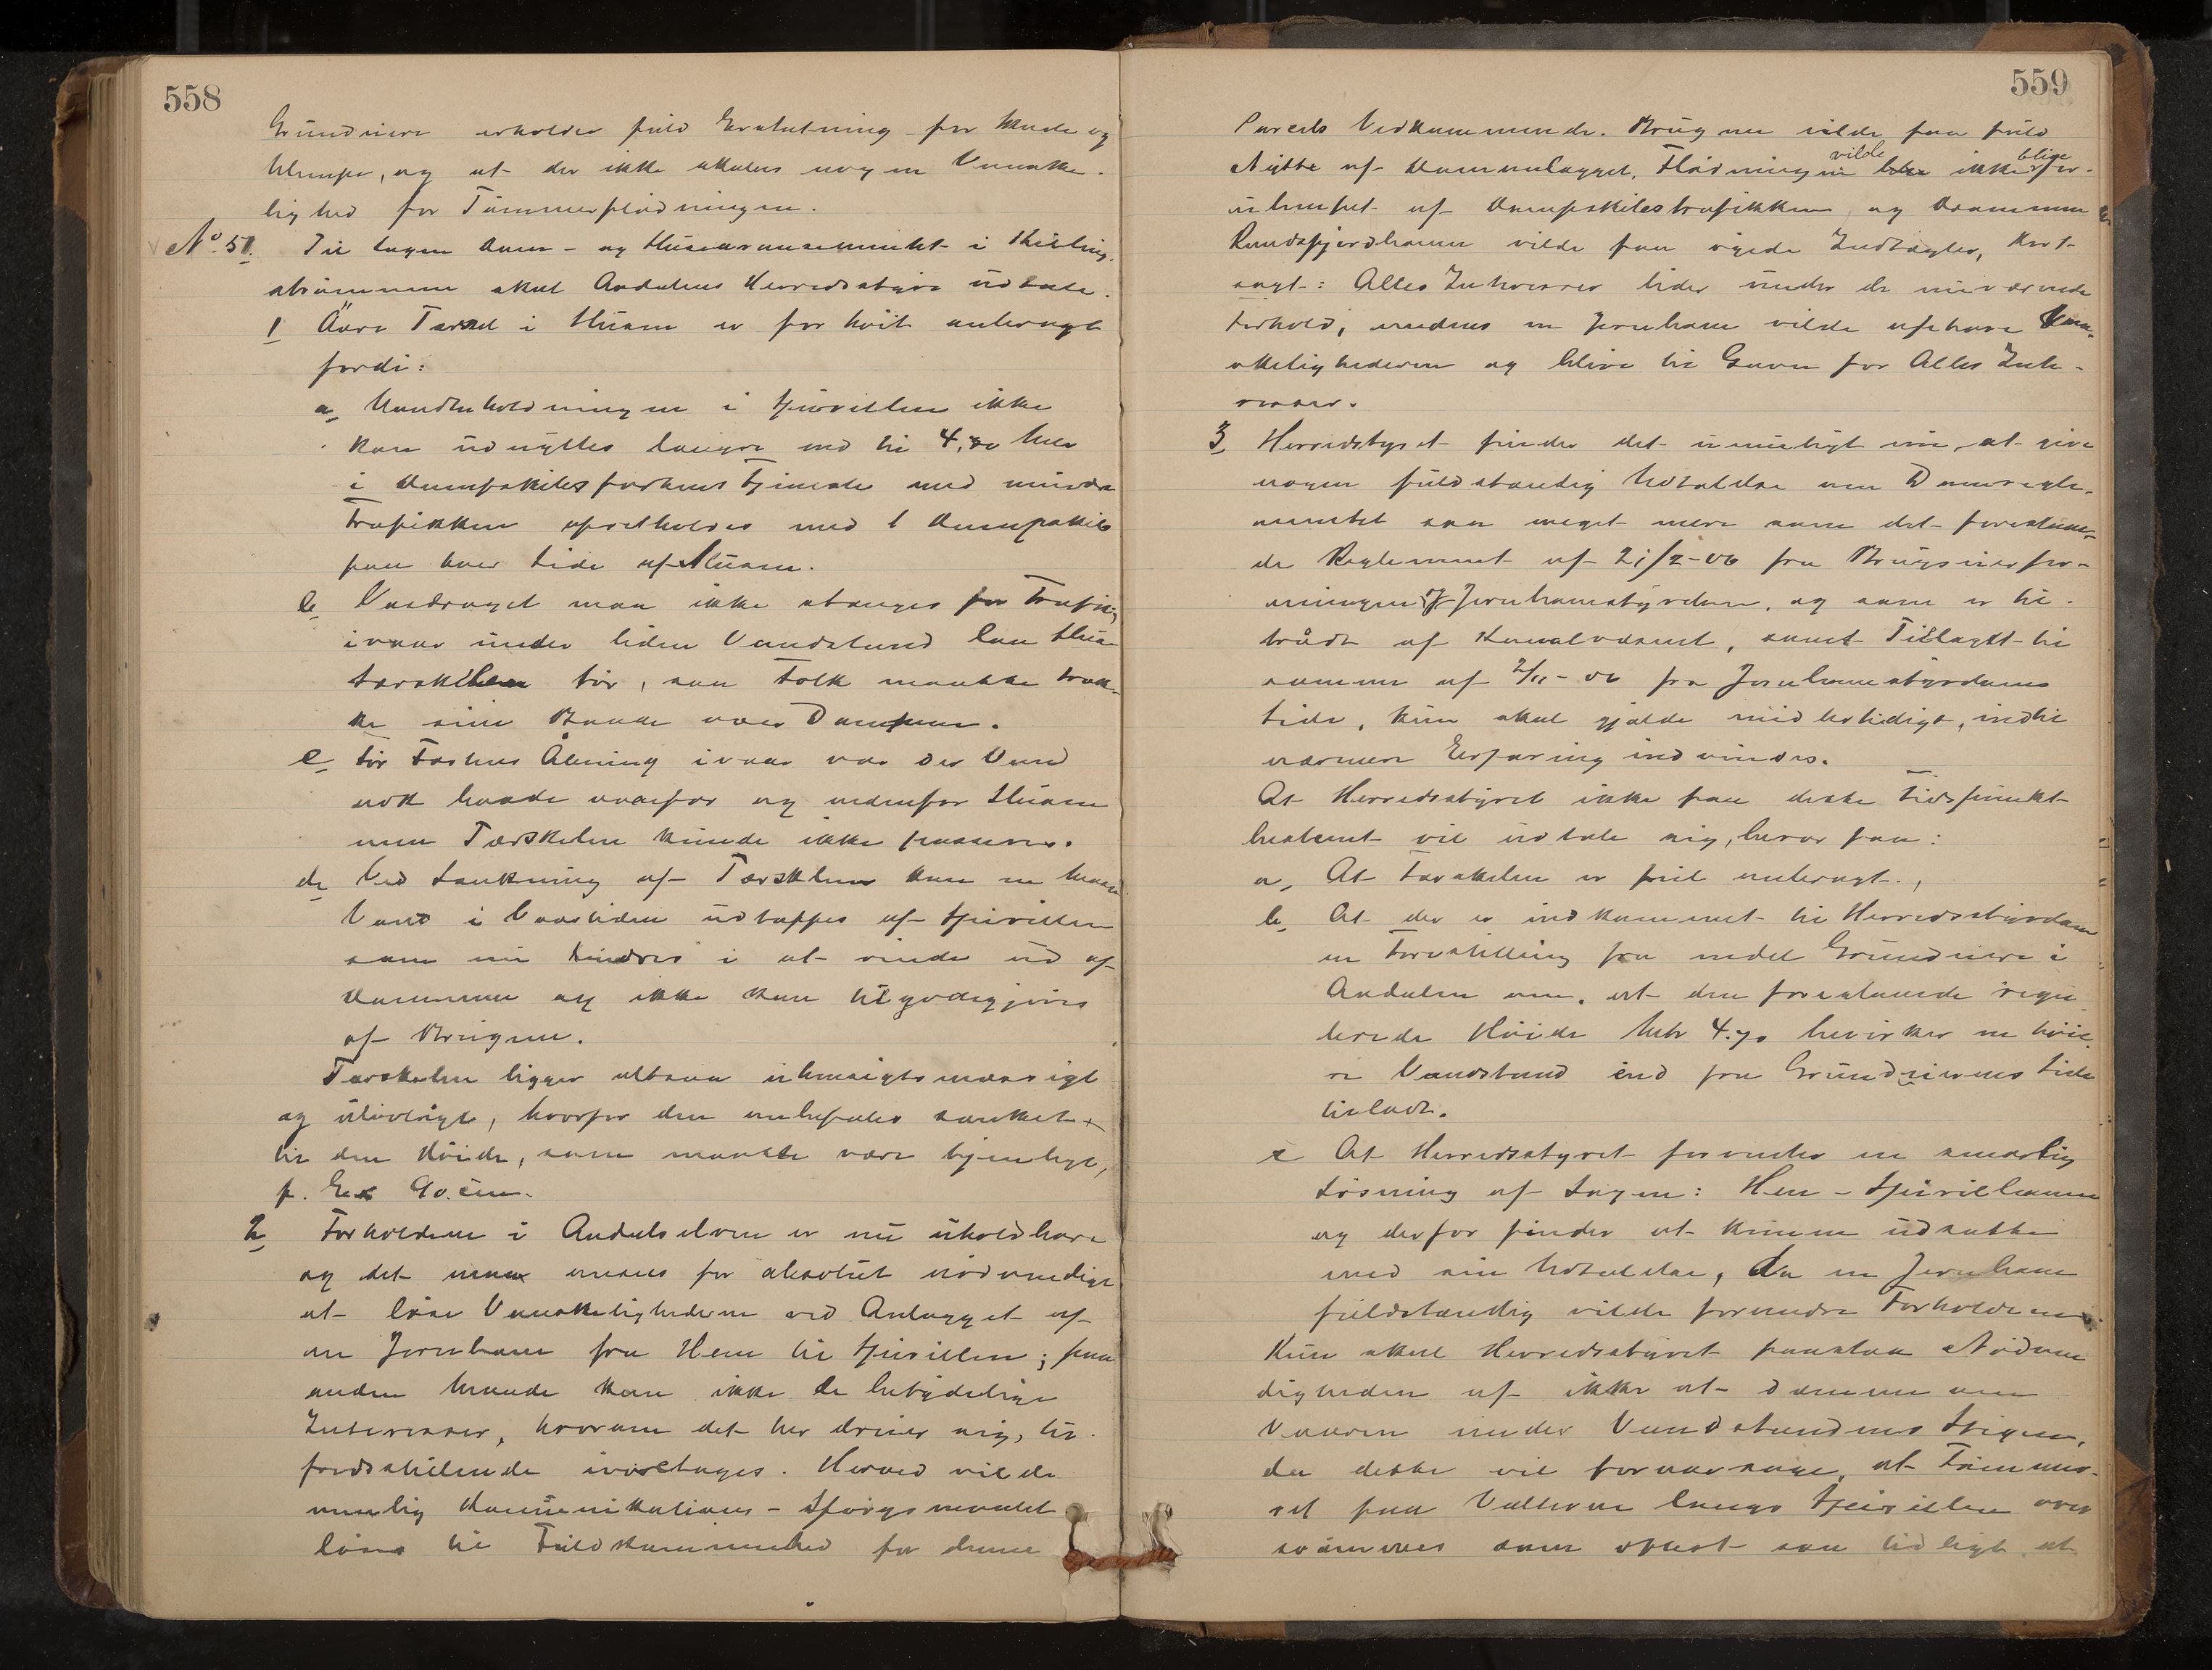 558
Grundeiere erholder fuld Erstatning for Skade og
Ulempe, og at der ikke skabes nogen Vanske-
lighed for Tømmerflødningen.
No. 51. Til Sagen Dam- og Slusearrangementet i Skilling-
strømmen skal Aadalens Herredsstyre udtale.
1 Øvre Tærskel i Slusen er for høit anbragt
fordi:
a, Vandbeholdningen i Spirillen ikke
kan udnyttes længre end til 4,70 Mtr
i Dampskibsfartens Tjeneste med mindre
Trafikken opretholdes med 1 Dampskib
paa hver Side af Slusen.
b, Vasdraget maa ikke stænges for Trafik,
ivaar under liden Vandstand laa Sluse
tærskelen tør, saa Folk maatte træk-
ke sine Baade over Dammen.
c, Før Fosens Åbning ivaar var der Vand
nok baade ovenfor og nedenfor Slusen
men Tærskelen kunde ikke passeres.
d, Ved Sænkning af Tærsklen kan en Masse
Vand i Vaartiden udtappes af Spirillen
som nu hindres i at rinde ud af
Dammen og ikke kan tilgodegjøres
af Brugene.
Tærskelen ligger altsaa uhensigtsmæssigt
og ulovligt, hvorfor den anbefales sænket
til den Høide, som maatte være tjenligt,
f. Ex 90 cm.
2, Forholdene i Aadalselven er nu uholdbare
og det maa ansees for absolut nødvendigt
at løse Vanskelighederne ved Anlægget af
en Jernbane fra Hen til Spirillen; paa
anden Maade kan ikke de betydelige
Interesser, hvorom det her dreier sig, til-
fredsstillende ivaretages. Herved vilde
nemlig Kommunikations-Spørgsmaalet
løses til Fuldkommenhed for denne
559
Parcels Vedkommende. Brugene vilde faa fuld
Nytte af Damanlægget, Flødningen vilde ikke blive for-
ulempet af Dampskibstrafikken og Drammen
Randsfjordbanen vilde faa øgede Indtægter, kort
sagt: Alles Interesser lider under de nuværende
Forhold, medens en Jernbane vilde ophæve Van-
skelighederne og blive til Gavn for Alles Inte-
resser.
3, Herredstyret finder det umuligt nu at give
nogen fuldstændig Udtalelse om Damregle-
mentet saa meget mere som det foreståen-
de Reglement af 21/2-06 fra Brugseierfor-
eningen Jernbanestyrelsen, og som er til-
trådt af Kanalvæsenet, samt Tillægget til
samme af 2/11-06 fra Jernbanestyrelsens
Side, kun skal gjælde midlertidigt, indtil
nærmere Erfaring indvindes.
At Herredsstyret ikke paa dette Tidspunkt
bestemt vil udtale sig, beror paa:
a, At Tærskelen er feil anbragt.,
b, At der er indkommet til Herredsstyrelsen
en Forestilling fra endel Grundeiere i
Aadalen om, at den forestaaende regu
lerede Høide Mtr 4.70 bevirker en høie-
re Vandstand end fra Grundeiernes Side
tilladt.
c At Herredsstyret forventer en snarlig
Løsning af Sagen: Hen-Spirillbanen
og derfor finder at kunne udsætte
med sin Udtalelse, da en Jernbane
fuldstændig vilde forandre Forholdene.
Kun skal Herredsstyret paastaa Nødven
digheden af ikke at dæmme om
Vaaren under Vandstandens Stigen,
da dette vil foraarsage, at Tømme-
ret paa Velterne langs Spirillen over
svømmes som oftest saa tidligt at